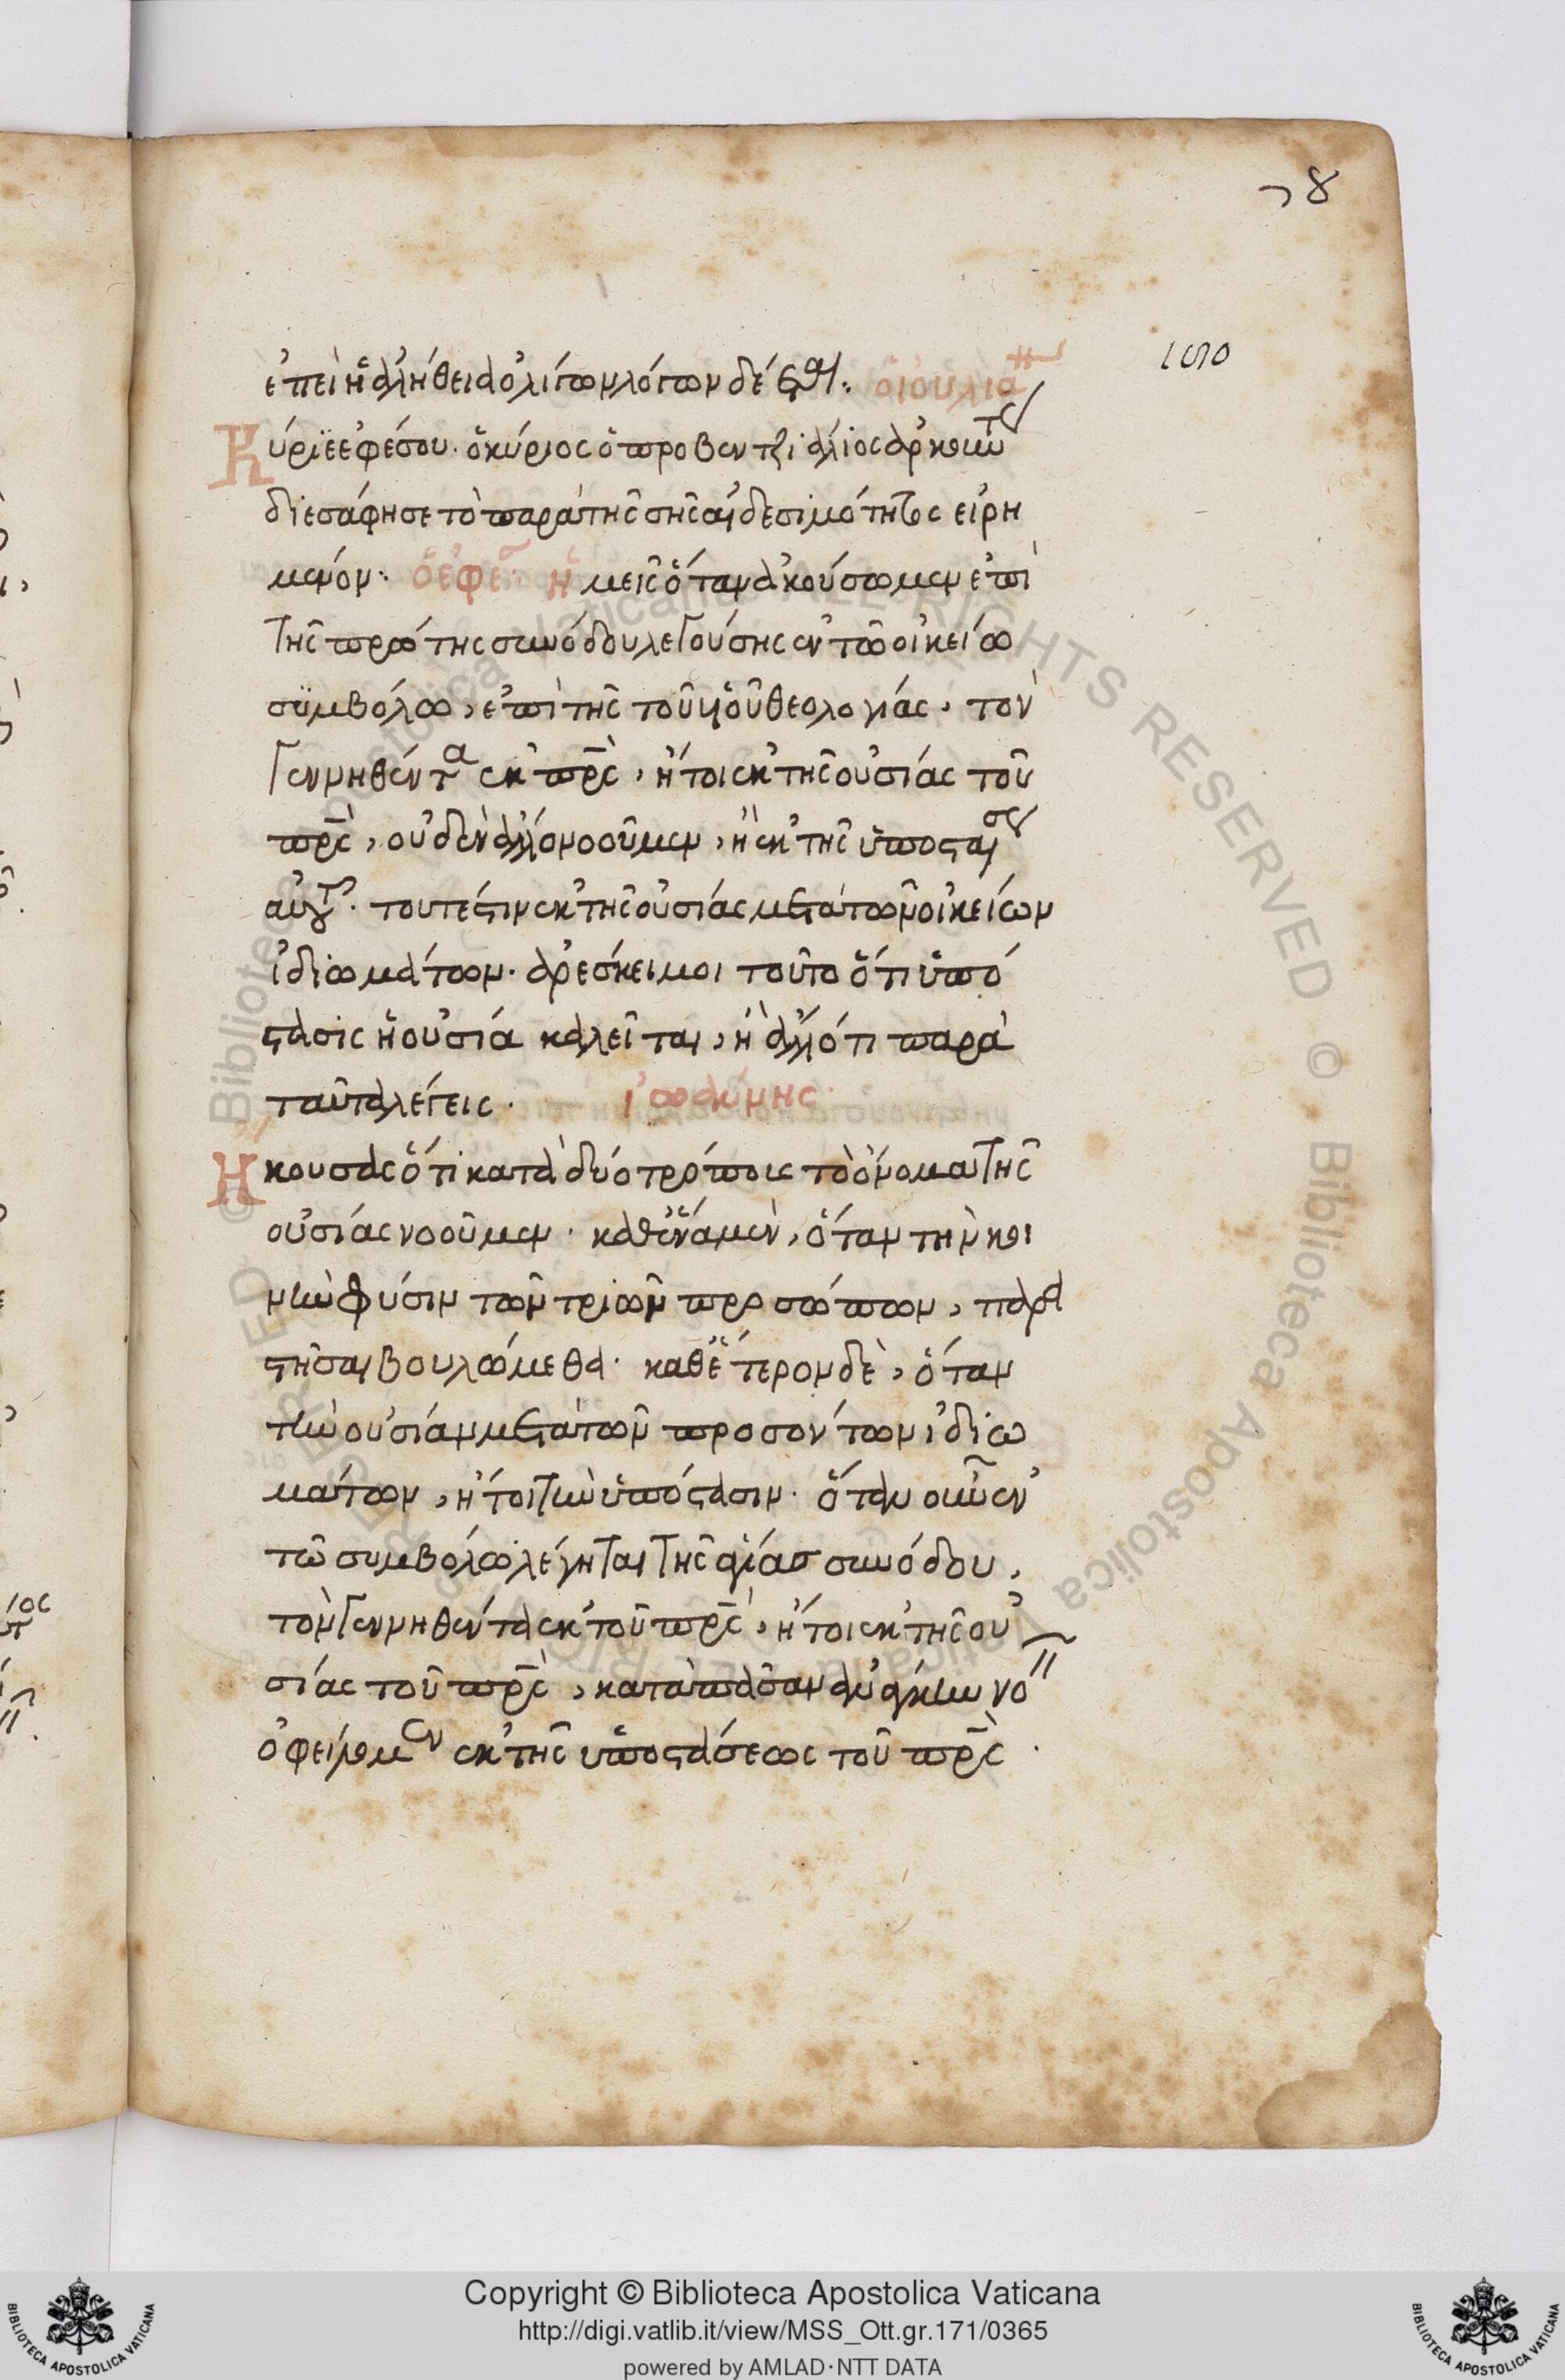 78
180
ἐπεὶ ἡ ἀλήθεια ὀλίγων λόγων δέεται. ὁ ἰουλια
Κύριε ἐφέσου. ὁ κύριος ὁ προβεντζιάλιος ἀρκούντως
διεσάφησε τὸ παρὰ τῆς σῆς αἰδεσιμότητος εἰρη
μένον. ὁ ἐφέ. ἡμεῖς ὅταν ἀκούσωμεν ἐπὶ
τῆς πρώτης συνόδου λεγούσης ἐν τῶ οἰκείω
συμβόλω, ἐπὶ τῆς τοῦ υἱοῦ θεολογίας, τὸν
γεννηθέντα ἐκ πρς, ἤτοι ἐκ τῆς οὐσίας τοῦ
πρς, οὐδὲν ἄλλο νοοῦμεν, ἢ ἐκ τῆς ὑποστάσεως
αὐτοῦ. τουτέστιν ἐκ τῆς οὐσίας μετὰ τῶν οἰκείων
ἰδιωμάτων. ἀρέσκει μοι τοῦτο ὅτι ὑπό
στασις ἡ οὐσία καλεῖται, ἢ ἄλλό τι παρὰ
ταῦτα λέγεις. ἰωάννης.
Ἤκουσας ὅτι κατὰ δύο τρόπους τὸ ὄνομα τῆς
οὐσίας νοοῦμεν. καθ' ἕνα μὲν, ὅταν τὴν κοι
νὴν φύσιν τῶν τριῶν προσώπων, παρα
στῆσαι βουλώμεθα. καθ' ἕτερον δὲ, ὅταν
τὴν οὐσίαν μετὰ τῶν προσόντων ἰδιω
μάτων, ἤτοι τὴν ὑπόστασιν. ὅταν οὖν ἐν
τῶ συμβόλω λέγηται τῆς ἁγίας συνόδου,
τὸν γεννηθέντα ἐκ τοῦ πρς, ἤτοι ἐκ τῆς οὐ
σίας τοῦ πρς, κατὰ πᾶσαν ἀνάγκην νοεῖν
ὀφείλομεν ἐκ τῆς ὑποστάσεως τοῦ πρς.
© Biblioteca Apostolica Vaticana ALL RIGHTS RESERVED
Copyright © Biblioteca Apostolica Vaticana
http://digi.vatlib.it/view/MSS_Ott.gr.171/0365
powered by AMLAD·NTT DATA
BIBLIOTECA APOSTOLICA VATICANA
BIBLIOTECA APOSTOLICA VATICANA